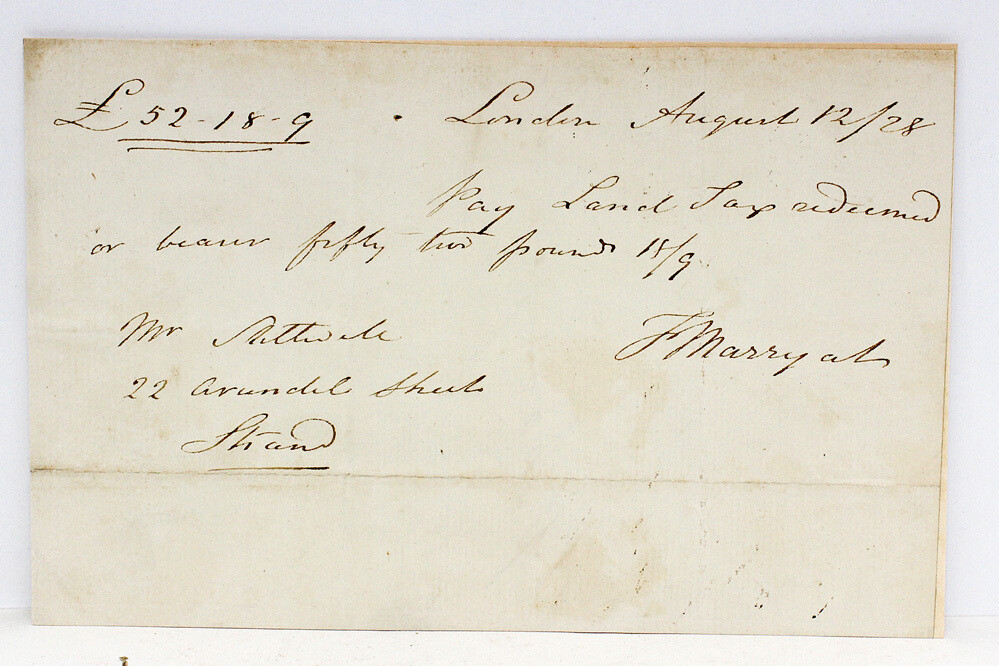 £ 52-18-9 London August 12/28
Pay Land Tax redeemed
or bearer fifty two pounds 18/9
Mr
F Marryat
22 Arundel Street
Strand